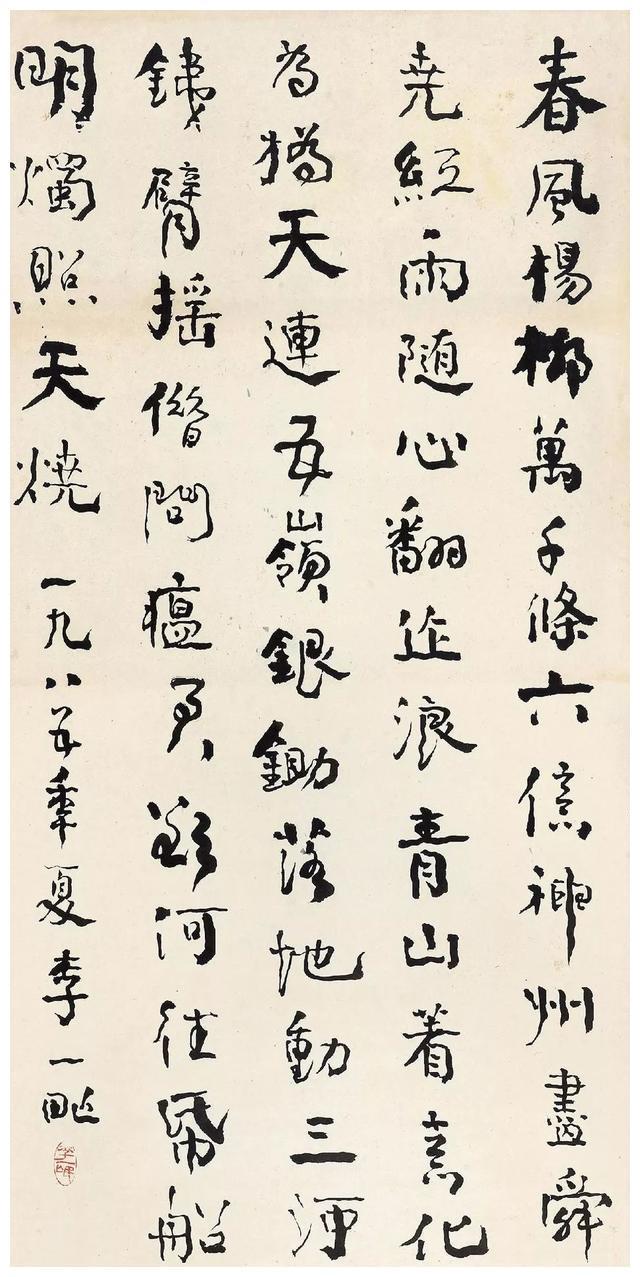 春風楊柳萬千條六億神州盡舜
堯紅雨随心翻作浪青山着意化
為橋天連五嶺銀鋤落地動三河
銕臂摇借問瘟君欲何往帋船
明燭照天燒 一九八五年夏李一甿